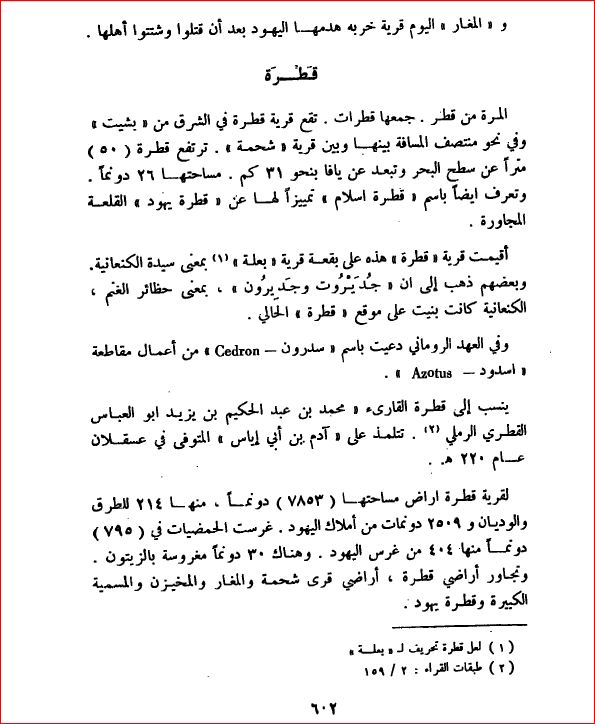 و « المغار » اليوم قرية خربه هدمهـا اليهود بعد أن قتلوا وشتتوا أهلها .
قَطْـرَة
المرة من قطر . جمعها قطرات . تقع قرية قطرة في الشرق من « بشيت »
وفي نحو منتصف المسافة بينهـا وبين قرية « شحمة » . ترتفع قطرة ( ٥٠ )
متراً عن سطح البحر وتبعد عن يافا بنحو ٣١ كم . مساحتهـا ٢٦ دونماً .
وتعرف ايضاً باسم « قطرة اسلام » تمييزاً لهـا عن « قطرة يهود » القلعة
المجاورة .
أقيمت قرية « قطرة » هذه على بقعة قرية « بعلة » (١) بمعنى سيدة الكنعانية.
وبعضهم ذهب إلى ان « جُدَيْرُوت وجَدِيرُون » ، بمعنى حظائر الغنم ،
الكنعانية كانت بنيت على موقع « قطرة » الحالي .
وفي العهد الروماني دعيت باسم « سدرون – Cedron » من أعمال مقاطعة
« اسدود – Azotus » .
ينسب إلى قطرة القارىء « محمد بن عبد الحكيم بن يزيد ابو العباس
القطري الرملي (٢) . تتلمذ على « آدم بن أبي إياس » المتوفى في عسقلان
عـام ٢٢٠ هـ .
لقرية قطرة اراض مساحتهـا ( ٧٨٥٣ ) دونمـاً ، منهـا ٢١٤ للطرق
والوديان و ٢٥٠٩ دونمات من أملاك اليهود . غرست الحمضيات في ( ٧٩٥ )
دونمـاً منها ٤٠٤ من غرس اليهود . وهناك ٣٠ دونماً مغروسة بالزيتون .
وتجاور أراضي قطرة ، أراضي قرى شحمة والمغار والمخيزن والمسمية
الكبيرة وقطرة يهود .
( ١ ) لعل قطرة تحريف لـ « بعلـة »
( ٢ ) طبقات القراء : ٢ / ١٥٩
٦٠٢